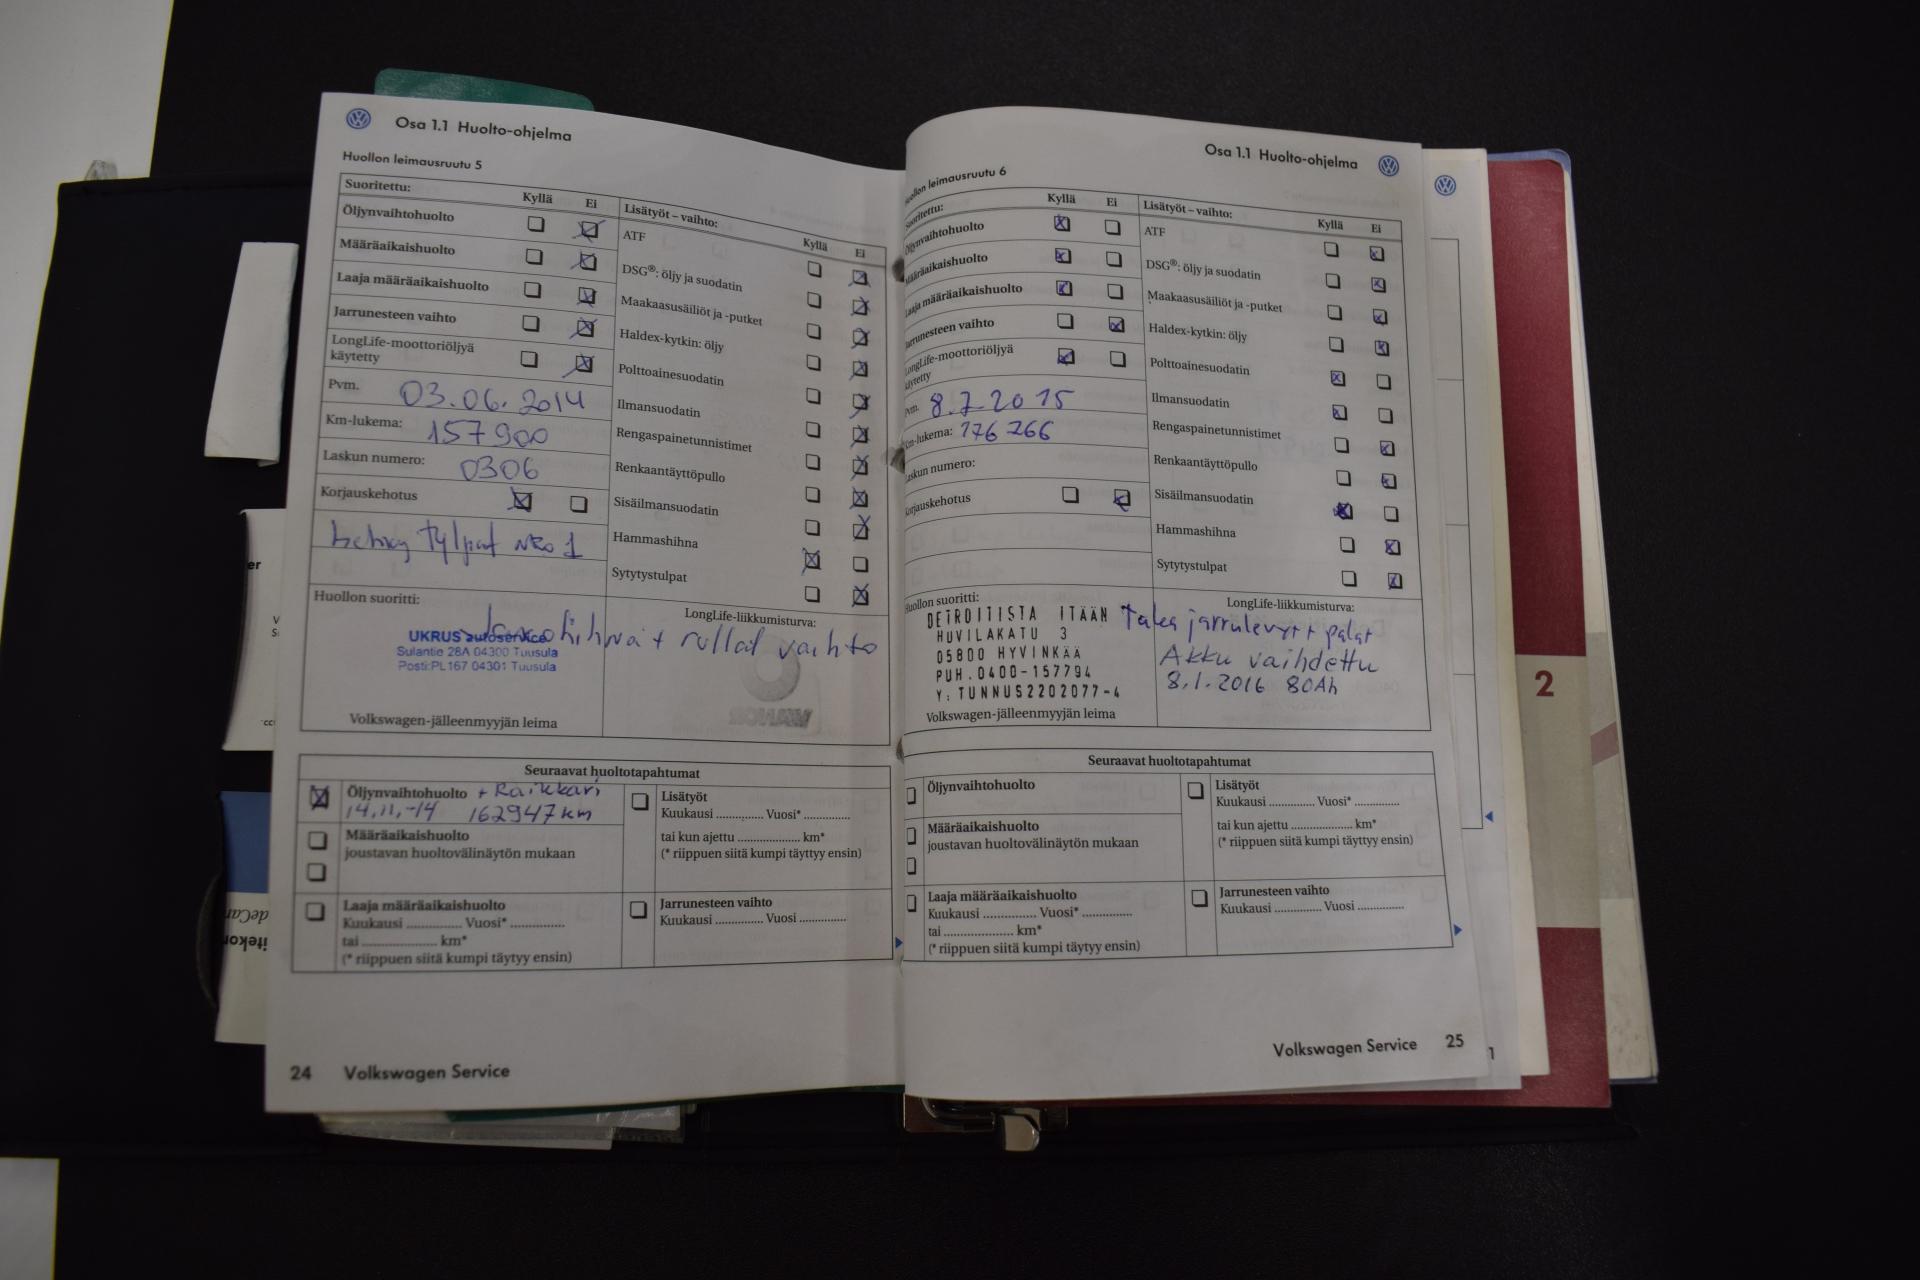 Osa 1.1 Huolto-ohjelma
Huollon leimausruutu 5
Suoritettu:
Kyllä Ei
Öljynvaihtohuolto
Määräaikaishuolto
Laaja määräaikaishuolto
Jarrunesteen vaihto
LongLife-moottoriöljyä
käytetty
Pvm. 03.06.2014
Km-lukema: 157900
Laskun numero: 0306
Korjauskehotus
NRO 1
Lisätyöt – vaihto:
Kyllä Ei
ATF
DSG®: öljy ja suodatin
Maakaasusäiliöt ja -putket
Haldex-kytkin: öljy
Polttoainesuodatin
Ilmansuodatin
Rengaspainetunnistimet
Renkaantäyttöpullo
Sisäilmansuodatin
Hammashihna
Sytytystulpat
Huollon suoritti:
LongLife-liikkumisturva:
UKRUS autoservice
Sulantie 28A 04300 Tuusula
Posti:PL167 04301 Tuusula
+ rullat vaihto
Volkswagen-jälleenmyyjän leima
Seuraavat huoltotapahtumat
Öljynvaihtohuolto + Raikkari
14.11.-14 162947 km
Määräaikaishuolto
joustavan huoltovälinäytön mukaan
Laaja määräaikaishuolto
Kuukausi .............. Vuosi* ..............
tai ................... km*
(* riippuen siitä kumpi täytyy ensin)
Lisätyöt
Kuukausi ............ Vuosi* ............
tai kun ajettu ................ km*
(* riippuen siitä kumpi täyttyy ensin)
Jarrunesteen vaihto
Kuukausi ............ Vuosi ............
24 Volkswagen Service
Osa 1.1 Huolto-ohjelma
Huollon leimausruutu 6
Suoritettu:
Kyllä Ei
Öljynvaihtohuolto
Määräaikaishuolto
Laaja määräaikaishuolto
Jarrunesteen vaihto
LongLife-moottoriöljyä
käytetty
Pvm. 8.7.2015
Km-lukema: 176 266
Laskun numero:
Korjauskehotus
Lisätyöt – vaihto:
Kyllä Ei
ATF
DSG®: öljy ja suodatin
Maakaasusäiliöt ja -putket
Haldex-kytkin: öljy
Polttoainesuodatin
Ilmansuodatin
Rengaspainetunnistimet
Renkaantäyttöpullo
Sisäilmansuodatin
Hammashihna
Sytytystulpat
Huollon suoritti:
LongLife-liikkumisturva:
DETROITISTA ITÄÄN
HUVILAKATU 3
05800 HYVINKÄÄ
PUH.0400-157794
Y:TUNNUS2202077-4
Taka jarrulevyt + palat
Akku vaihdettu
8.1.2016 80Ah
Volkswagen-jälleenmyyjän leima
Seuraavat huoltotapahtumat
Öljynvaihtohuolto
Määräaikaishuolto
joustavan huoltovälinäytön mukaan
Laaja määräaikaishuolto
Kuukausi .............. Vuosi* ..............
tai ................... km*
(* riippuen siitä kumpi täytyy ensin)
Lisätyöt
Kuukausi ............ Vuosi* ............
tai kun ajettu ................ km*
(* riippuen siitä kumpi täyttyy ensin)
Jarrunesteen vaihto
Kuukausi ............ Vuosi ............
Volkswagen Service 25
2